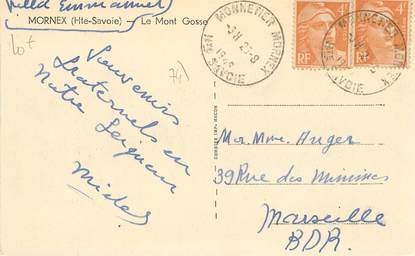 Villa Emmanuel
MORNEX (Hte-Savoie) — Le Mont Gosse
10+
(74)
Souvenirs
fraternels en
Notre Seigneur
MONNETIER MORNEX
HTE SAVOIE
MONNETIER MORNEX
HTE SAVOIE
4F
RF
4F
RF
COMBIER IMP. MACON
Mr. Mme. Auger
39 Rue des Minimes
Marseille
BDR.